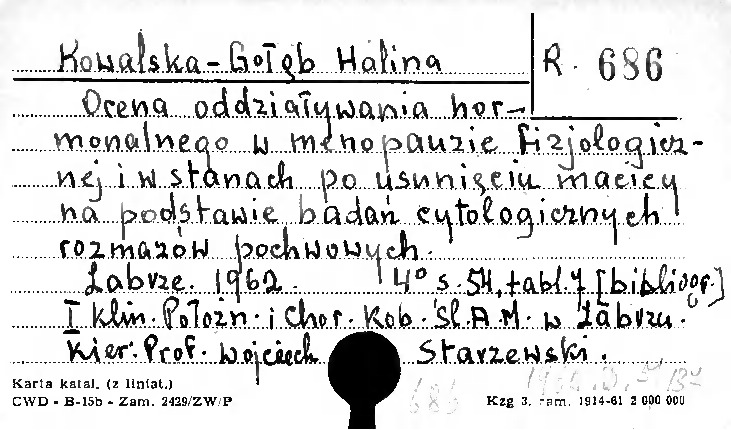 Kowalska-Gołąb Halina
R. 686
Ocena oddziaływania hor-
monalnego w menopauzie fizjologicz-
nej i w stanach po usunięciu macicy
na podstawie badań cytologicznych
rozmazów pochwowych.
Zabrze. 1962. 4° s. 54, tabl. 7 [bibliogr.]
I Klin. Położn. i Chor. Kob. Śl. A. M. w Zabrzu.
Kier. Prof. Wojciech Starzewski.
Karta katal. (z liniat.)
CWD - B-15b - Zam. 2429/ZW/P
686
Kzg 3. zam. 1914-61 2 000 000